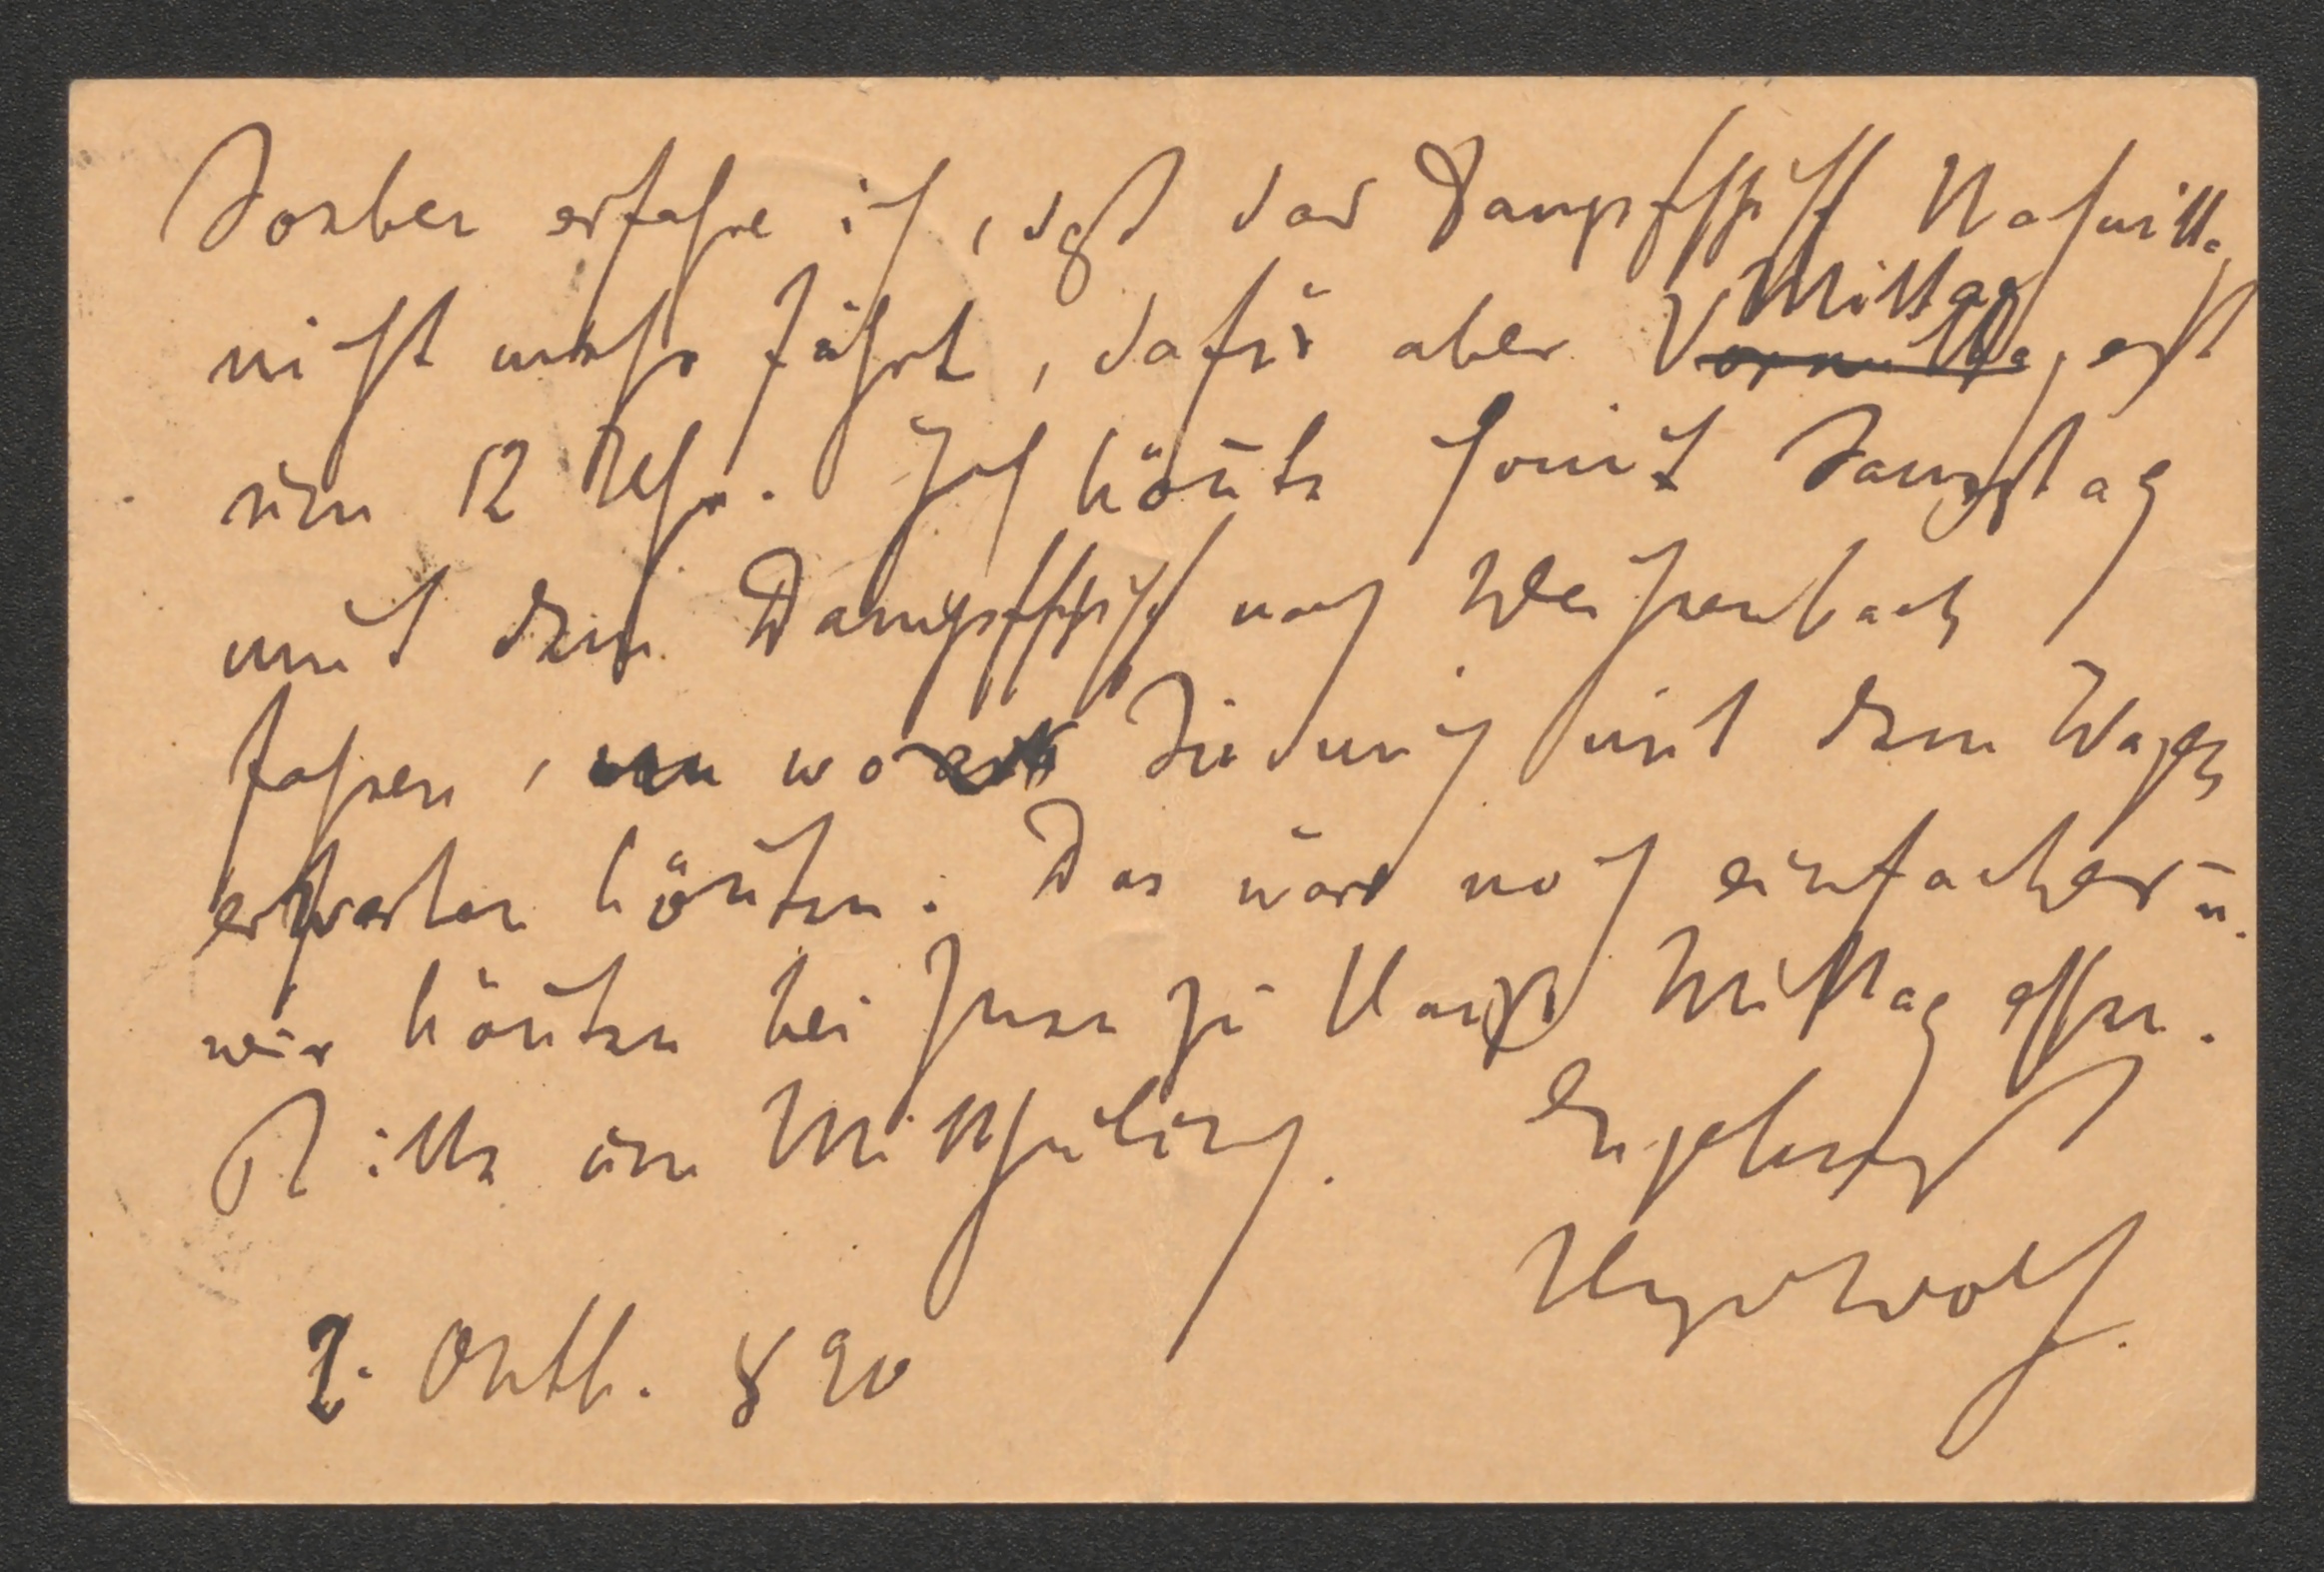 Soeben erfahre ich, daß das Dampfschiff Nachmitt.
Mittag
nicht mehr fährt, dafür aber Vormittag, erst
um 12 Uhr. Ich könnte somit Samstag
mit dem Dampfschiff nach Weißenbach
fahren, wo Sie mich mit dem Wagen
erwarten könnten. Das wäre noch einfacher u.
wir könnten bei Ihnen zu Haus Mittag essen.
Bitte um Mittheilung. Ergebenst
Hugo Wolf.
2. Oktb. 890